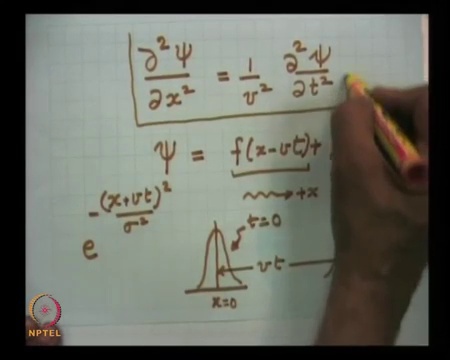 ∂²ψ/∂x² = 1/v² ∂²ψ/∂t²
ψ = f(x-vt) +
→ +x
e^(-(x+vt)²/σ²)
t=0
vt
x=0
NPTEL